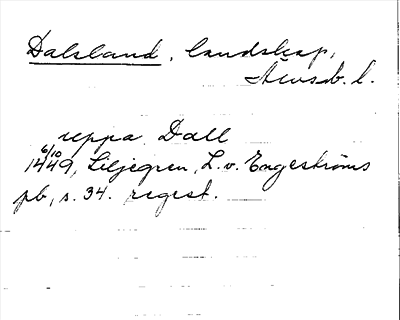 Dalsland, landskap,
Älvsb. l.
uppa Dall
6/10
1449, Liljegren, L. v. Engeströms
pb, s. 34. regest.